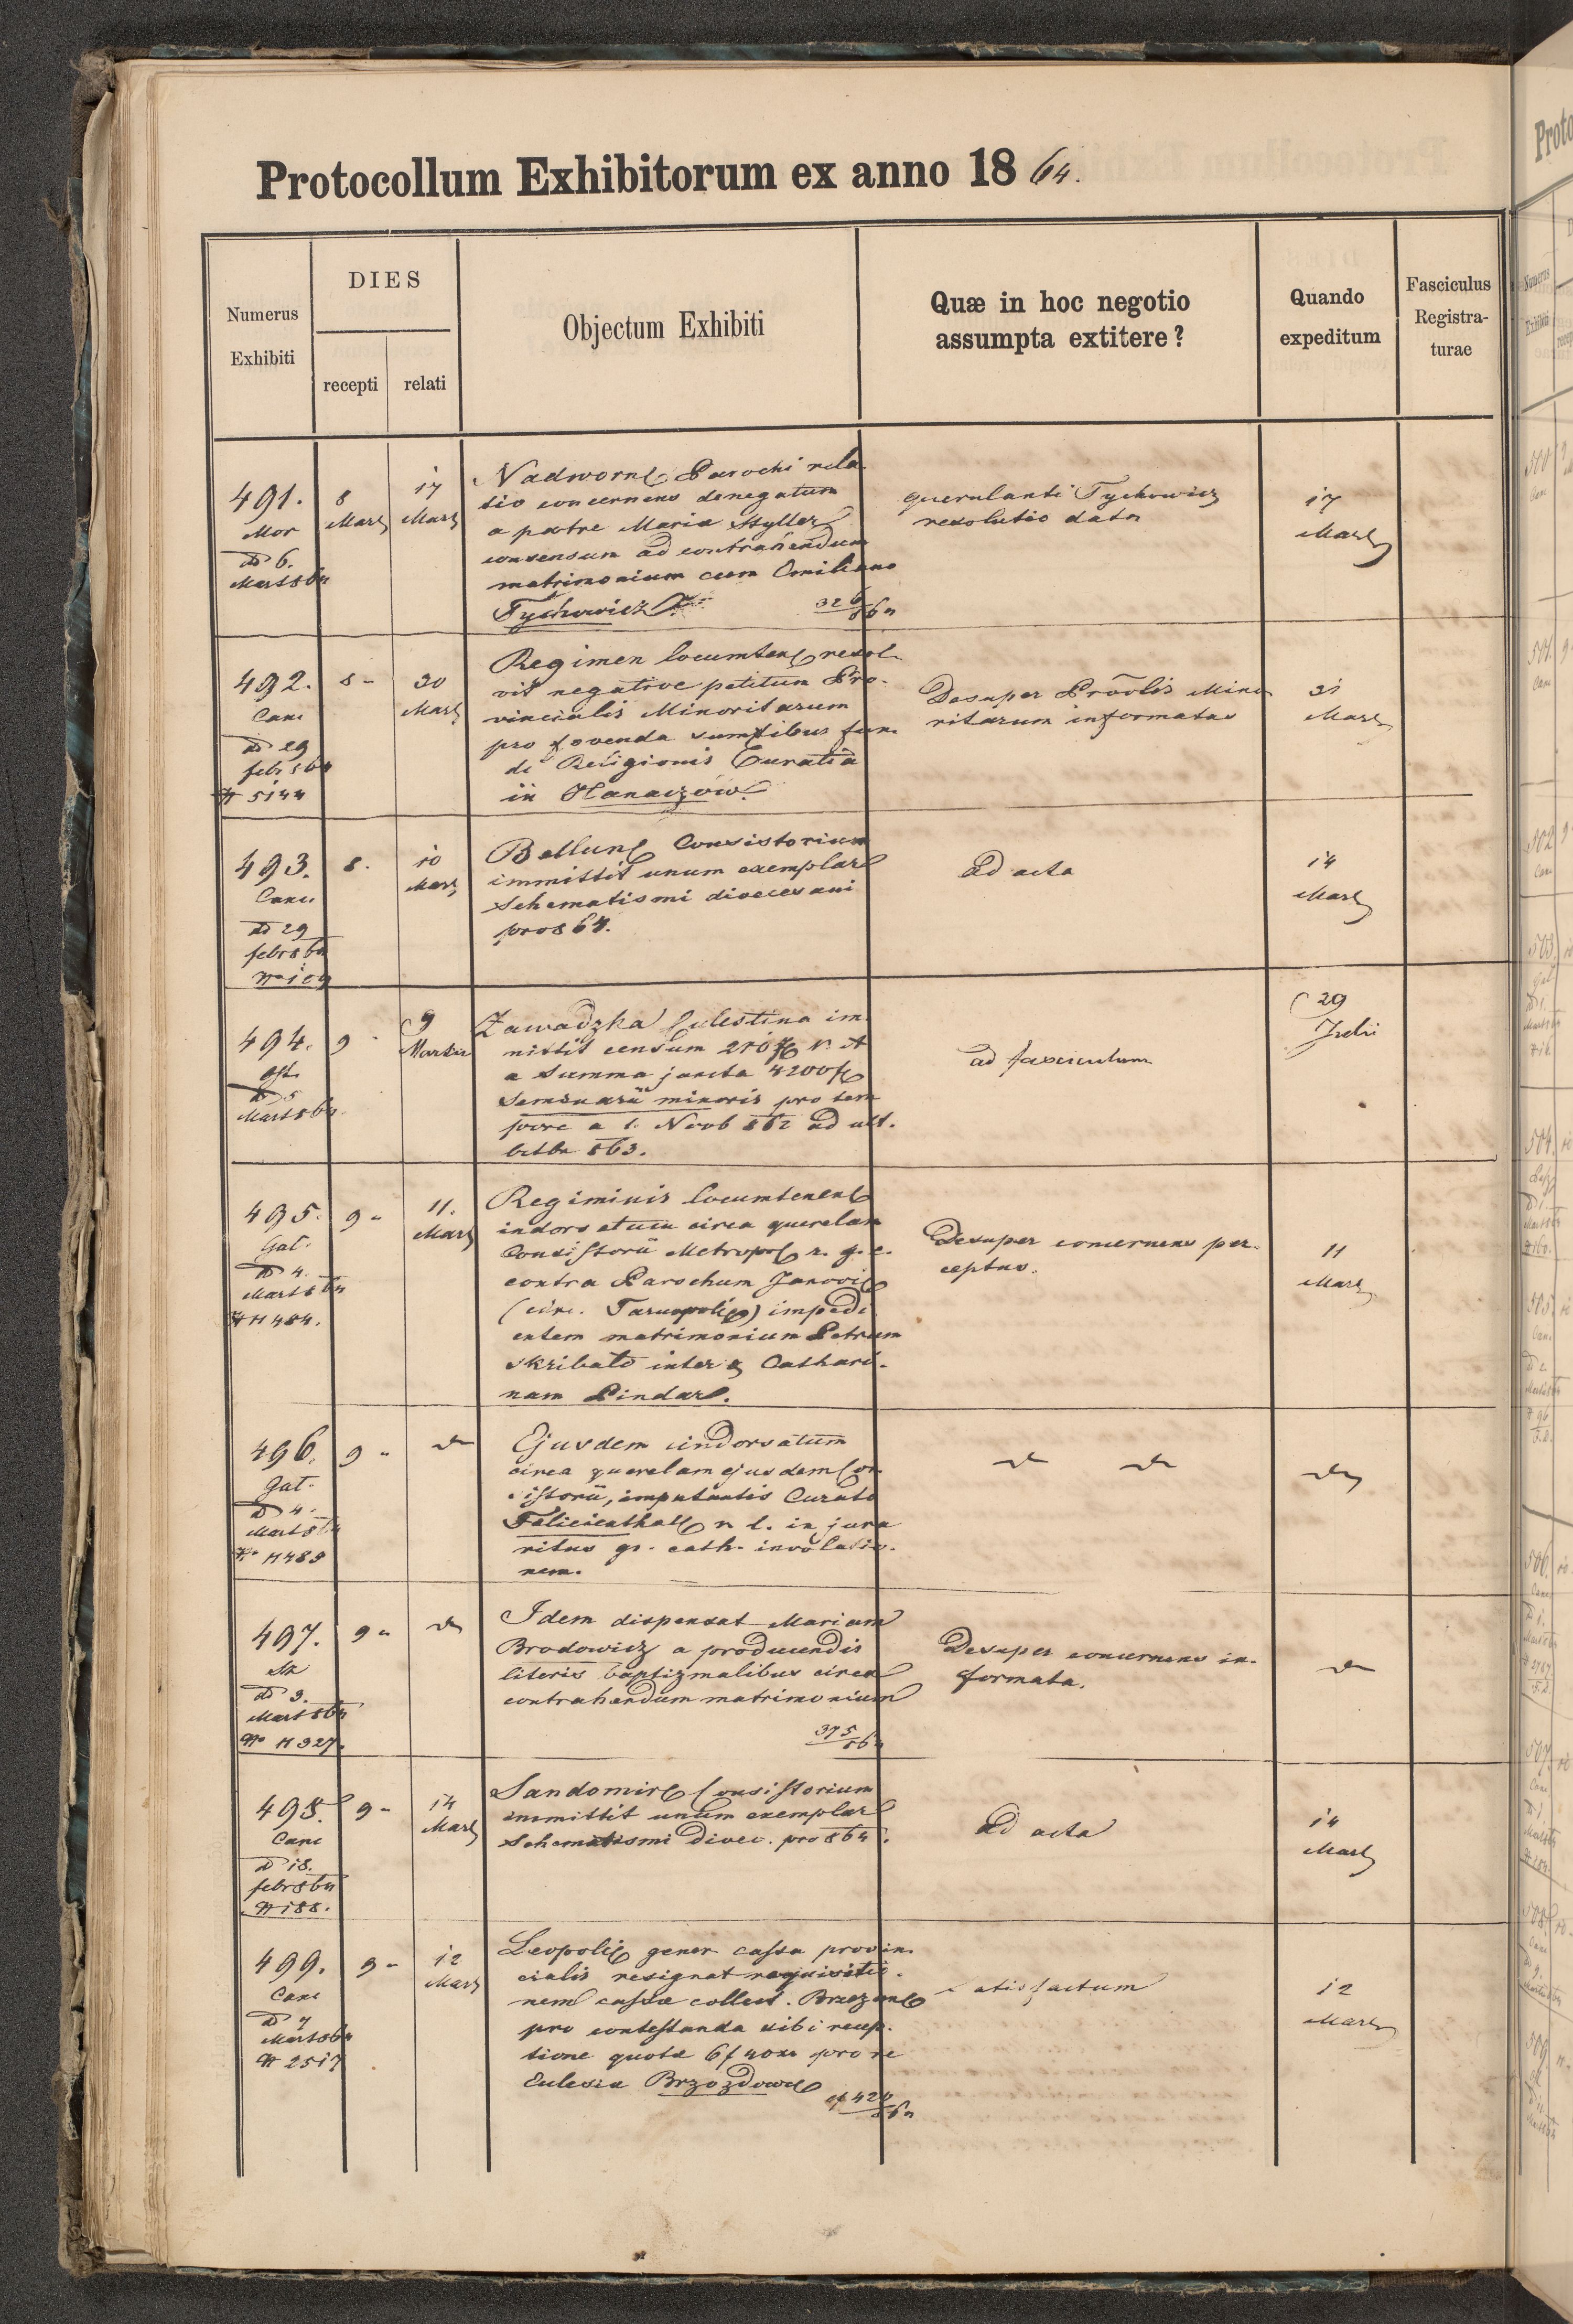 Protocollum Exhibitorum ex anno 18 64.
Numerus Exhibiti
DIES
recepti
relati
Objectum Exhibiti
Quæ in hoc negotio
assumpta extitere?
Quando
expeditum
Fasciculus
Registra-
turae
491.
Mor
dd 6.
Mart 864
8
Mart
17
Mart
Nadworn Parochi rela
tio concernens denegatum
a patre Maria Hyller
consensum ad contrahendum
matrimonium cum Emiliano
Tychowicz
326/864
querulanti Tychowicz
resolutio data
17
Mart
492.
Canc
dd 29
febr 864
N 5144
8 "
30
Mart
Regimen locumten resol
vit negative petitum Pro-
vincialis Minoritarum
pro fovenda sumtibus fun-
di Religionis Curatia
in Hanaczów.
Desuper Provlis Mino
ritarum informatus
31
Mart
493.
Canc
dd 29
febr 864
N 109
8.
10
Mart
Bellun Consistorium
immittit unum exemplar
Schematismi dioecesani
pro 864.
Ad acta
14
Mart
494.
dd 5
Mart 864.
9
9
Martii
Zawadzka Celestina im
mittit censum 210 fl v. A
a summa juncta 4200 fl
Seminarii minoris pro tem
pore a 1. Novb 862 ad ult.
octbr 863.
ad fasciculum
29
Julii
495.
Gal.
dd 4.
Mart 864
N 11484.
9 "
11.
Mart
Regiminis locumtenen
indorsatum circa querelam
Consistorii Metropol r. g. c.
contra Parochum Janovie
(circ. Tarnopoli) impedi
entem matrimonium Petrum
Skribalo inter & Cathari-
nam Pindar.
Desuper concernens per-
ceptus.
11
Mart
496.
Gal.
dd 4.
Mart 864
No 11489
9 "
do
Ejusdem indorsatum
circa querelam ejusdem Con
sistorii, imputantis Curato
Felicienthal r. l. in jura
ritus gr. cath. involatio-
nem.
do do
do
497.
dd 3.
Mart 864
No 11327.
9 "
do
Idem dispensat Mariam
Brodowicz a producendis
literis baptizmalibus circa
contrahendum matrimonium
375/864
Desuper concernens in-
formata.
do
498.
Canc
dd 18.
febr 864
N 188.
9 "
14
Mart
Sandomir Consistorium
immittit unum exemplar
Schematismi dioec. pro 864.
Ad acta
14
Mart
499.
Canc
dd 7
Mart 864
N 2517
9 "
12
Mart
Leopoli gener cassa provin
cialis resignat requisitio-
nem cassae collect. Brzezan
pro contestanda sibi recep-
tione quotae 6 f 40 xr pro re
Eclesia Brzozdow
N 420/864
satisfactum
12
Mart